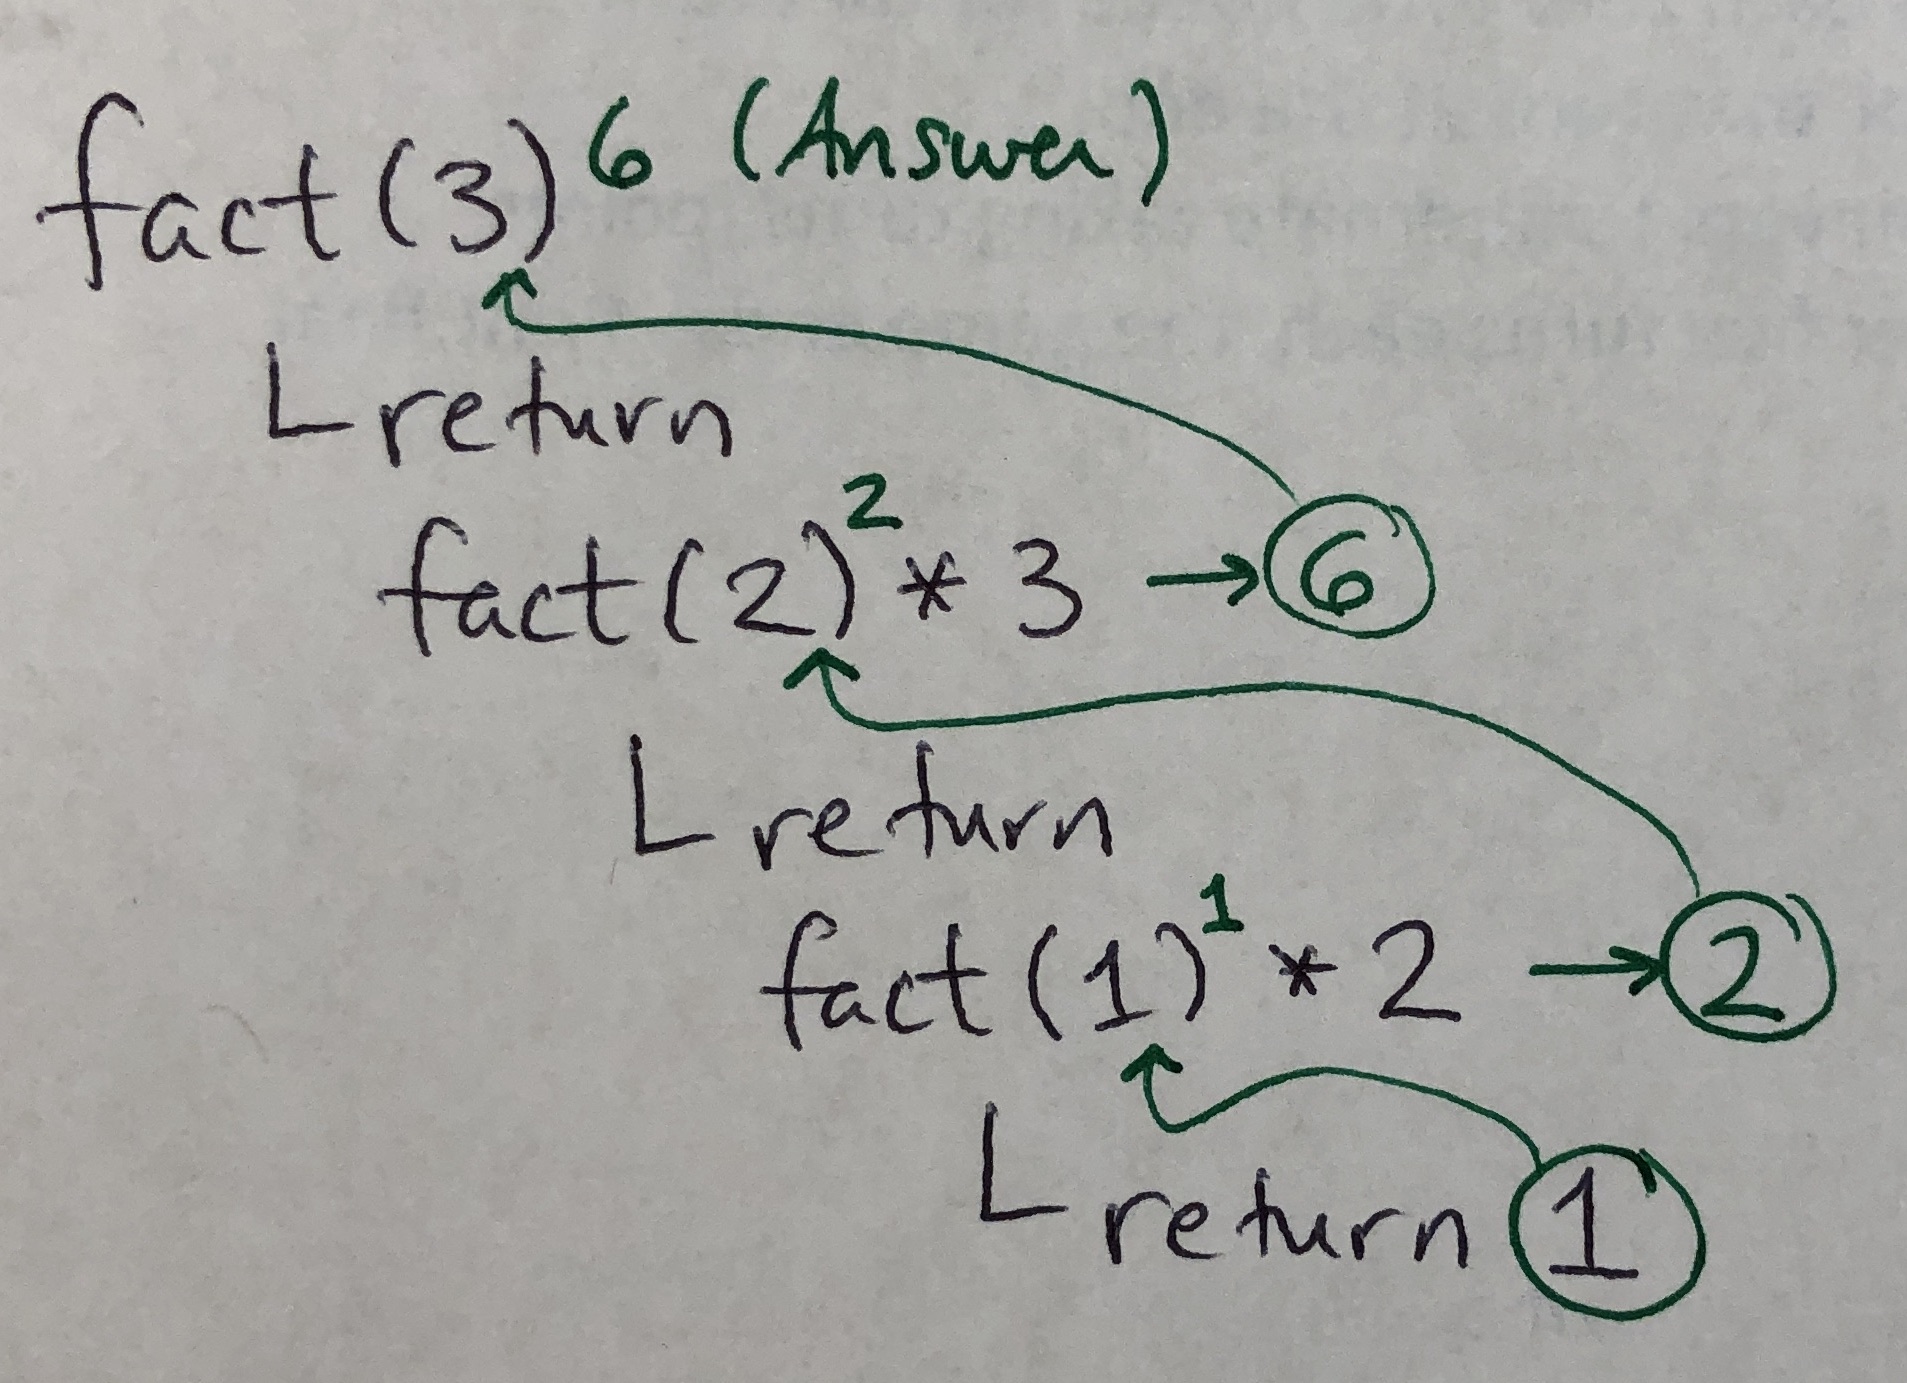 fact(3) 6 (Answer)
return
fact(2) 2 * 3 → 6
return
fact(1) 1 * 2 → 2
return 1